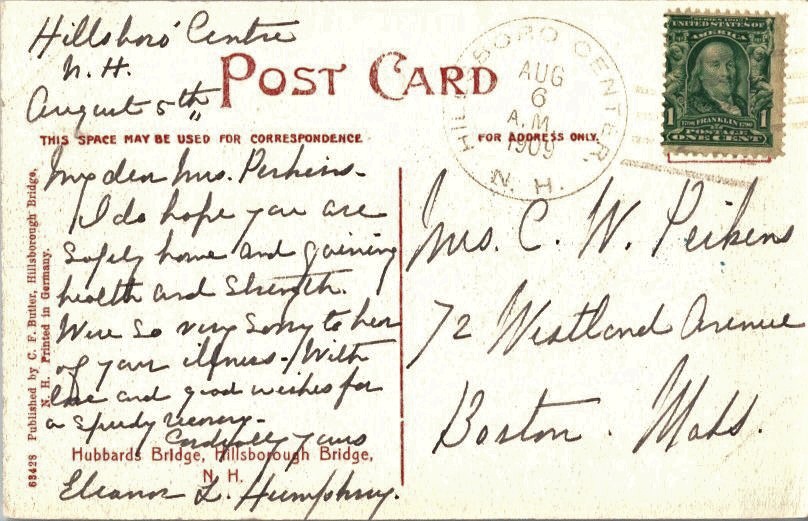 Hillsboro' Centre
N. H.
August 5th
POST CARD
THIS SPACE MAY BE USED FOR CORRESPONDENCE
FOR ADDRESS ONLY.
HILLSBORO CENTER,
AUG
6
A.M.
1909
N. H.
SERIES 1902
UNITED STATES OF
AMERICA
1 1
FRANKLIN
POSTAGE
ONE CENT
My dear Mrs. Perkins-
I do hope you are
safely home and gaining
health and strength.
Were so very sorry to hear
of your illness. With
love and good wishes for
a speedy recovery-
Cordially yours
Eleanor L. Humphrey.
Hubbards Bridge, Hillsborough Bridge,
N. H.
68428 Published by C. F. Butler, Hillsborough Bridge,
N. H. Printed in Germany.
Mrs. C. W. Perkins
72 Westland Avenue
Boston. Mass.